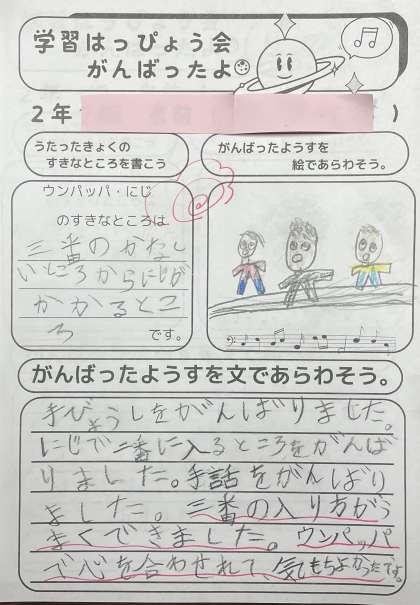 学習はっぴょう会
がんばったよ
2年
)
うたったきょくの
すきなところを書こう
がんばったようすを
絵であらわそう。
ウンパッパ・にじ
のすきなところは
三番のかなし
いところからにじが
かかるとこ
ろ
です。
がんばったようすを文であらわそう。
手びょうしをがんばりました。
にじで二番に入るところをがんば
りました。手話をがんばり
ました。三番の入り方がう
まくできました。ウンパッパ
で心を合わせれて、気もちよかったです。